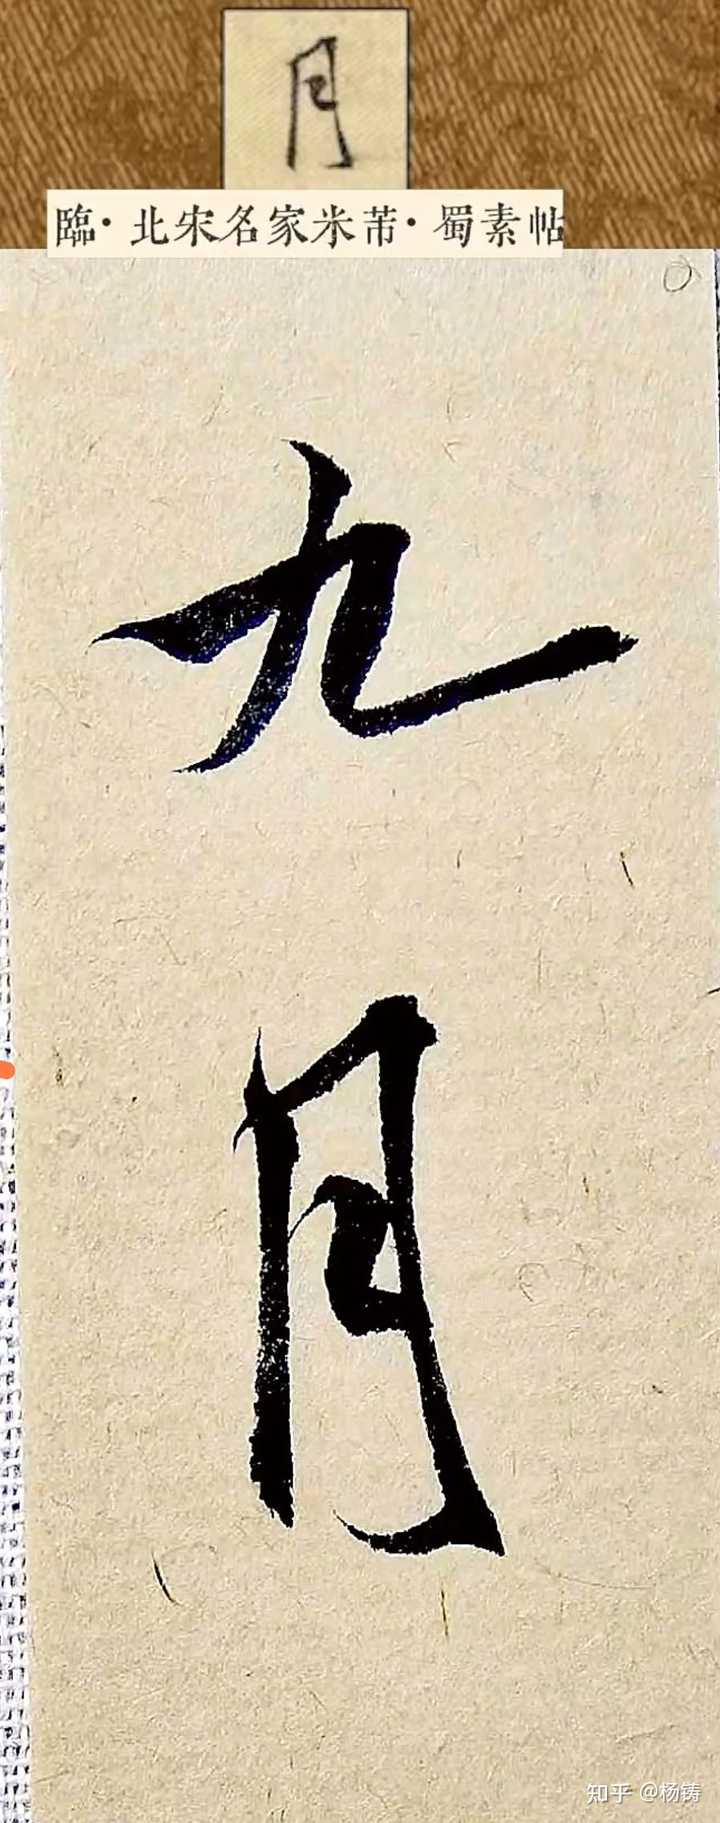 月
臨·北宋名家米芾·蜀素帖
九
月
知乎 @杨铸